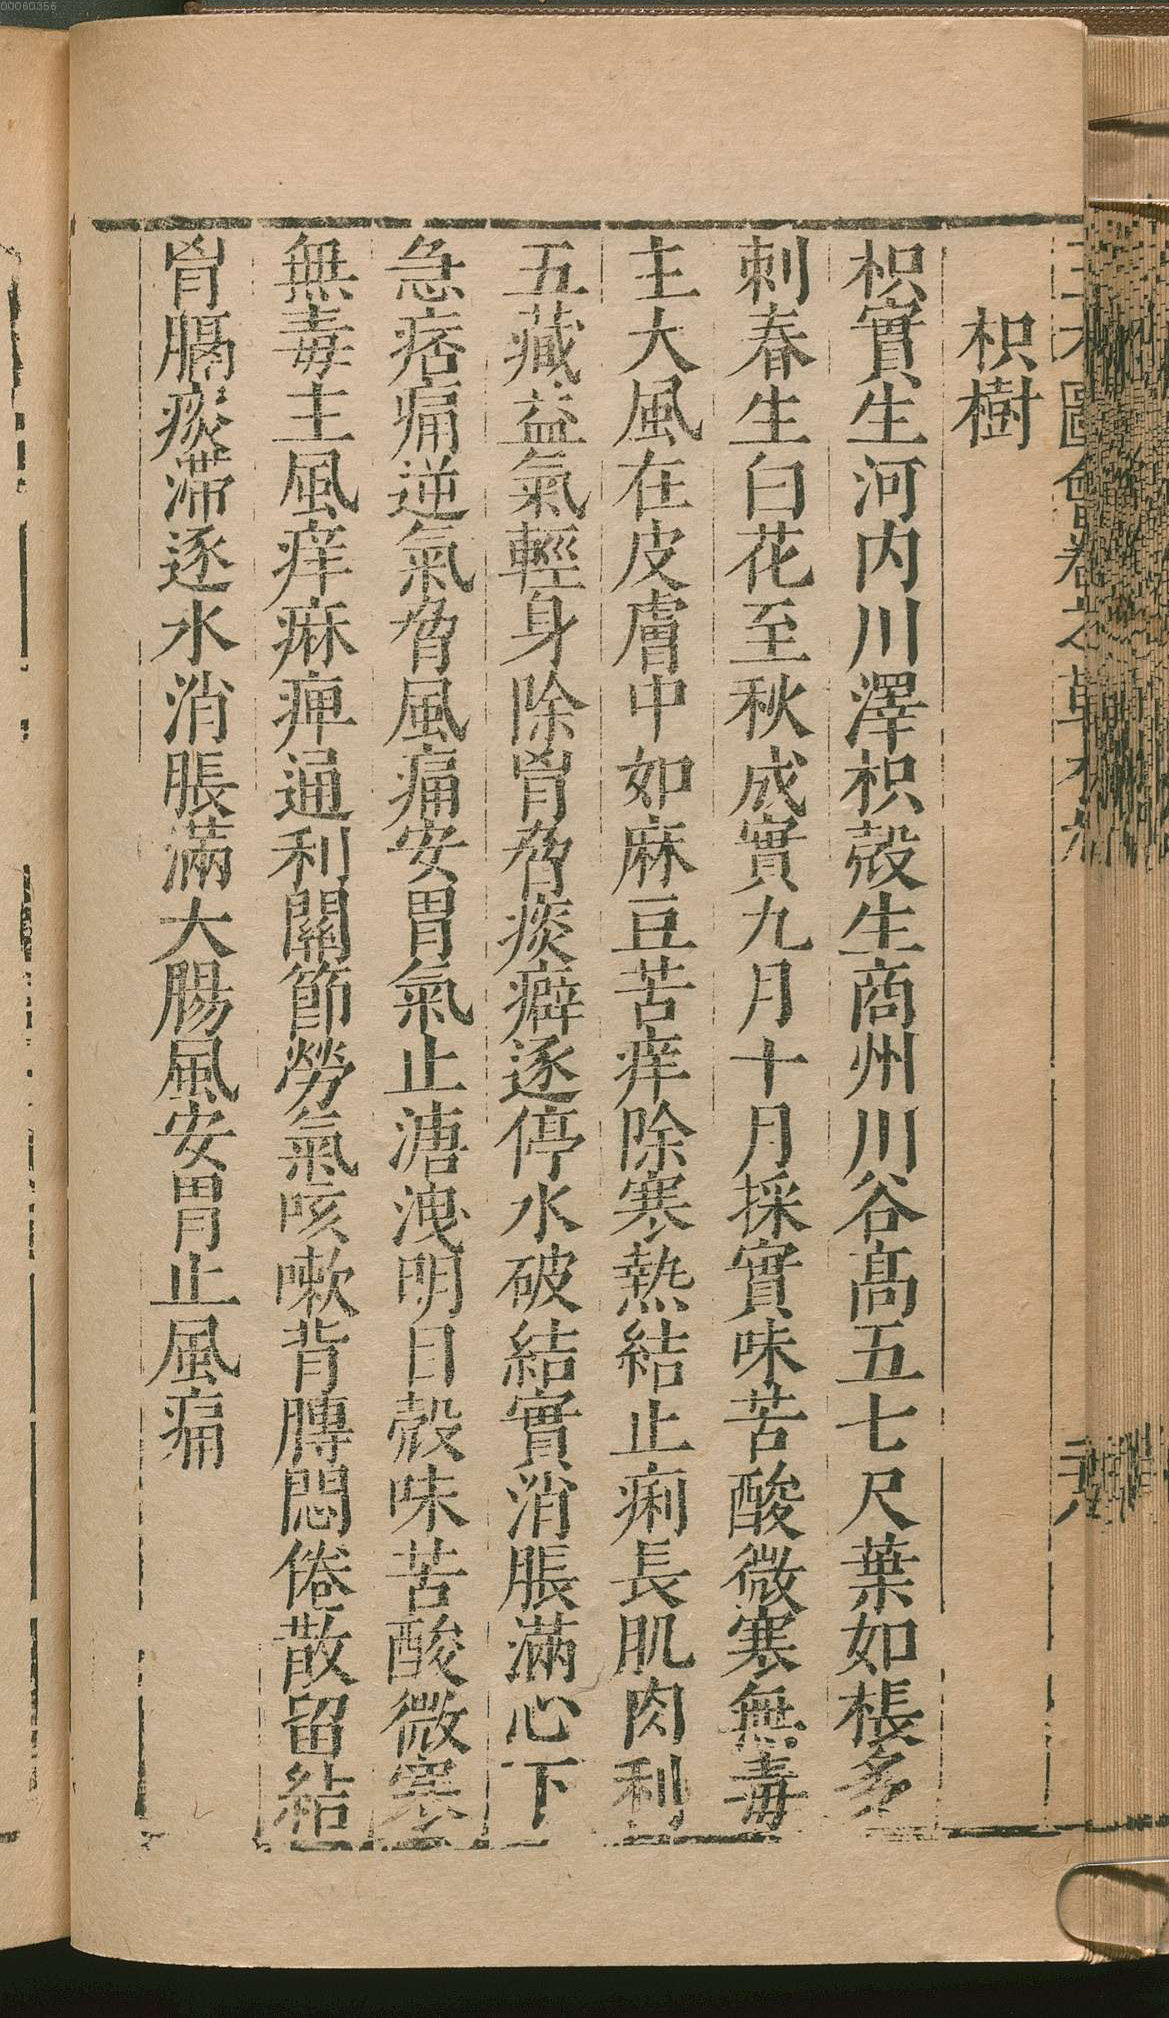 00060356
枳樹
枳實生河内川澤枳殼生商州川谷髙五七尺葉如棖多
刺春生白花至秋成實九月十月採實味苦酸微寒無毒
主大風在皮膚中如麻豆苦痒除寒熱結止痢長肌肉利
五藏益氣輕身除胷脅痰癖逐停水破結實消脹滿心下
急痞痛逆氣脅風痛安胃氣止溏洩明目殼味苦酸微寒
無毒主風痒痳痺通利關節勞氣咳嗽背膞悶倦散留結
胷膈痰滯逐水消脹滿大腸風安胃止風痛